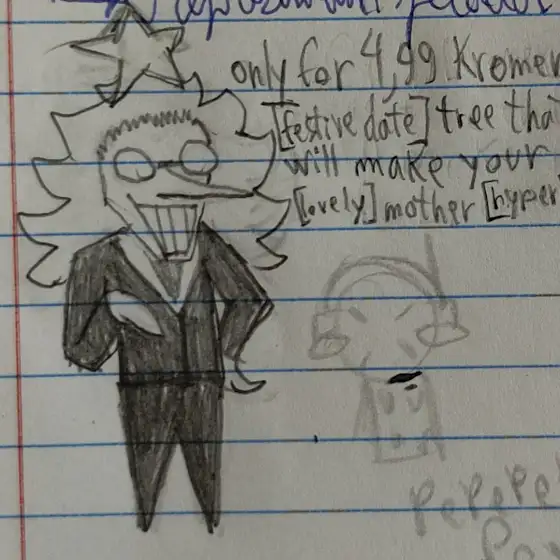 only for 4,99 Kromer
[festive date] tree tha
will make your
[lovely] mother [hyper
PePePe